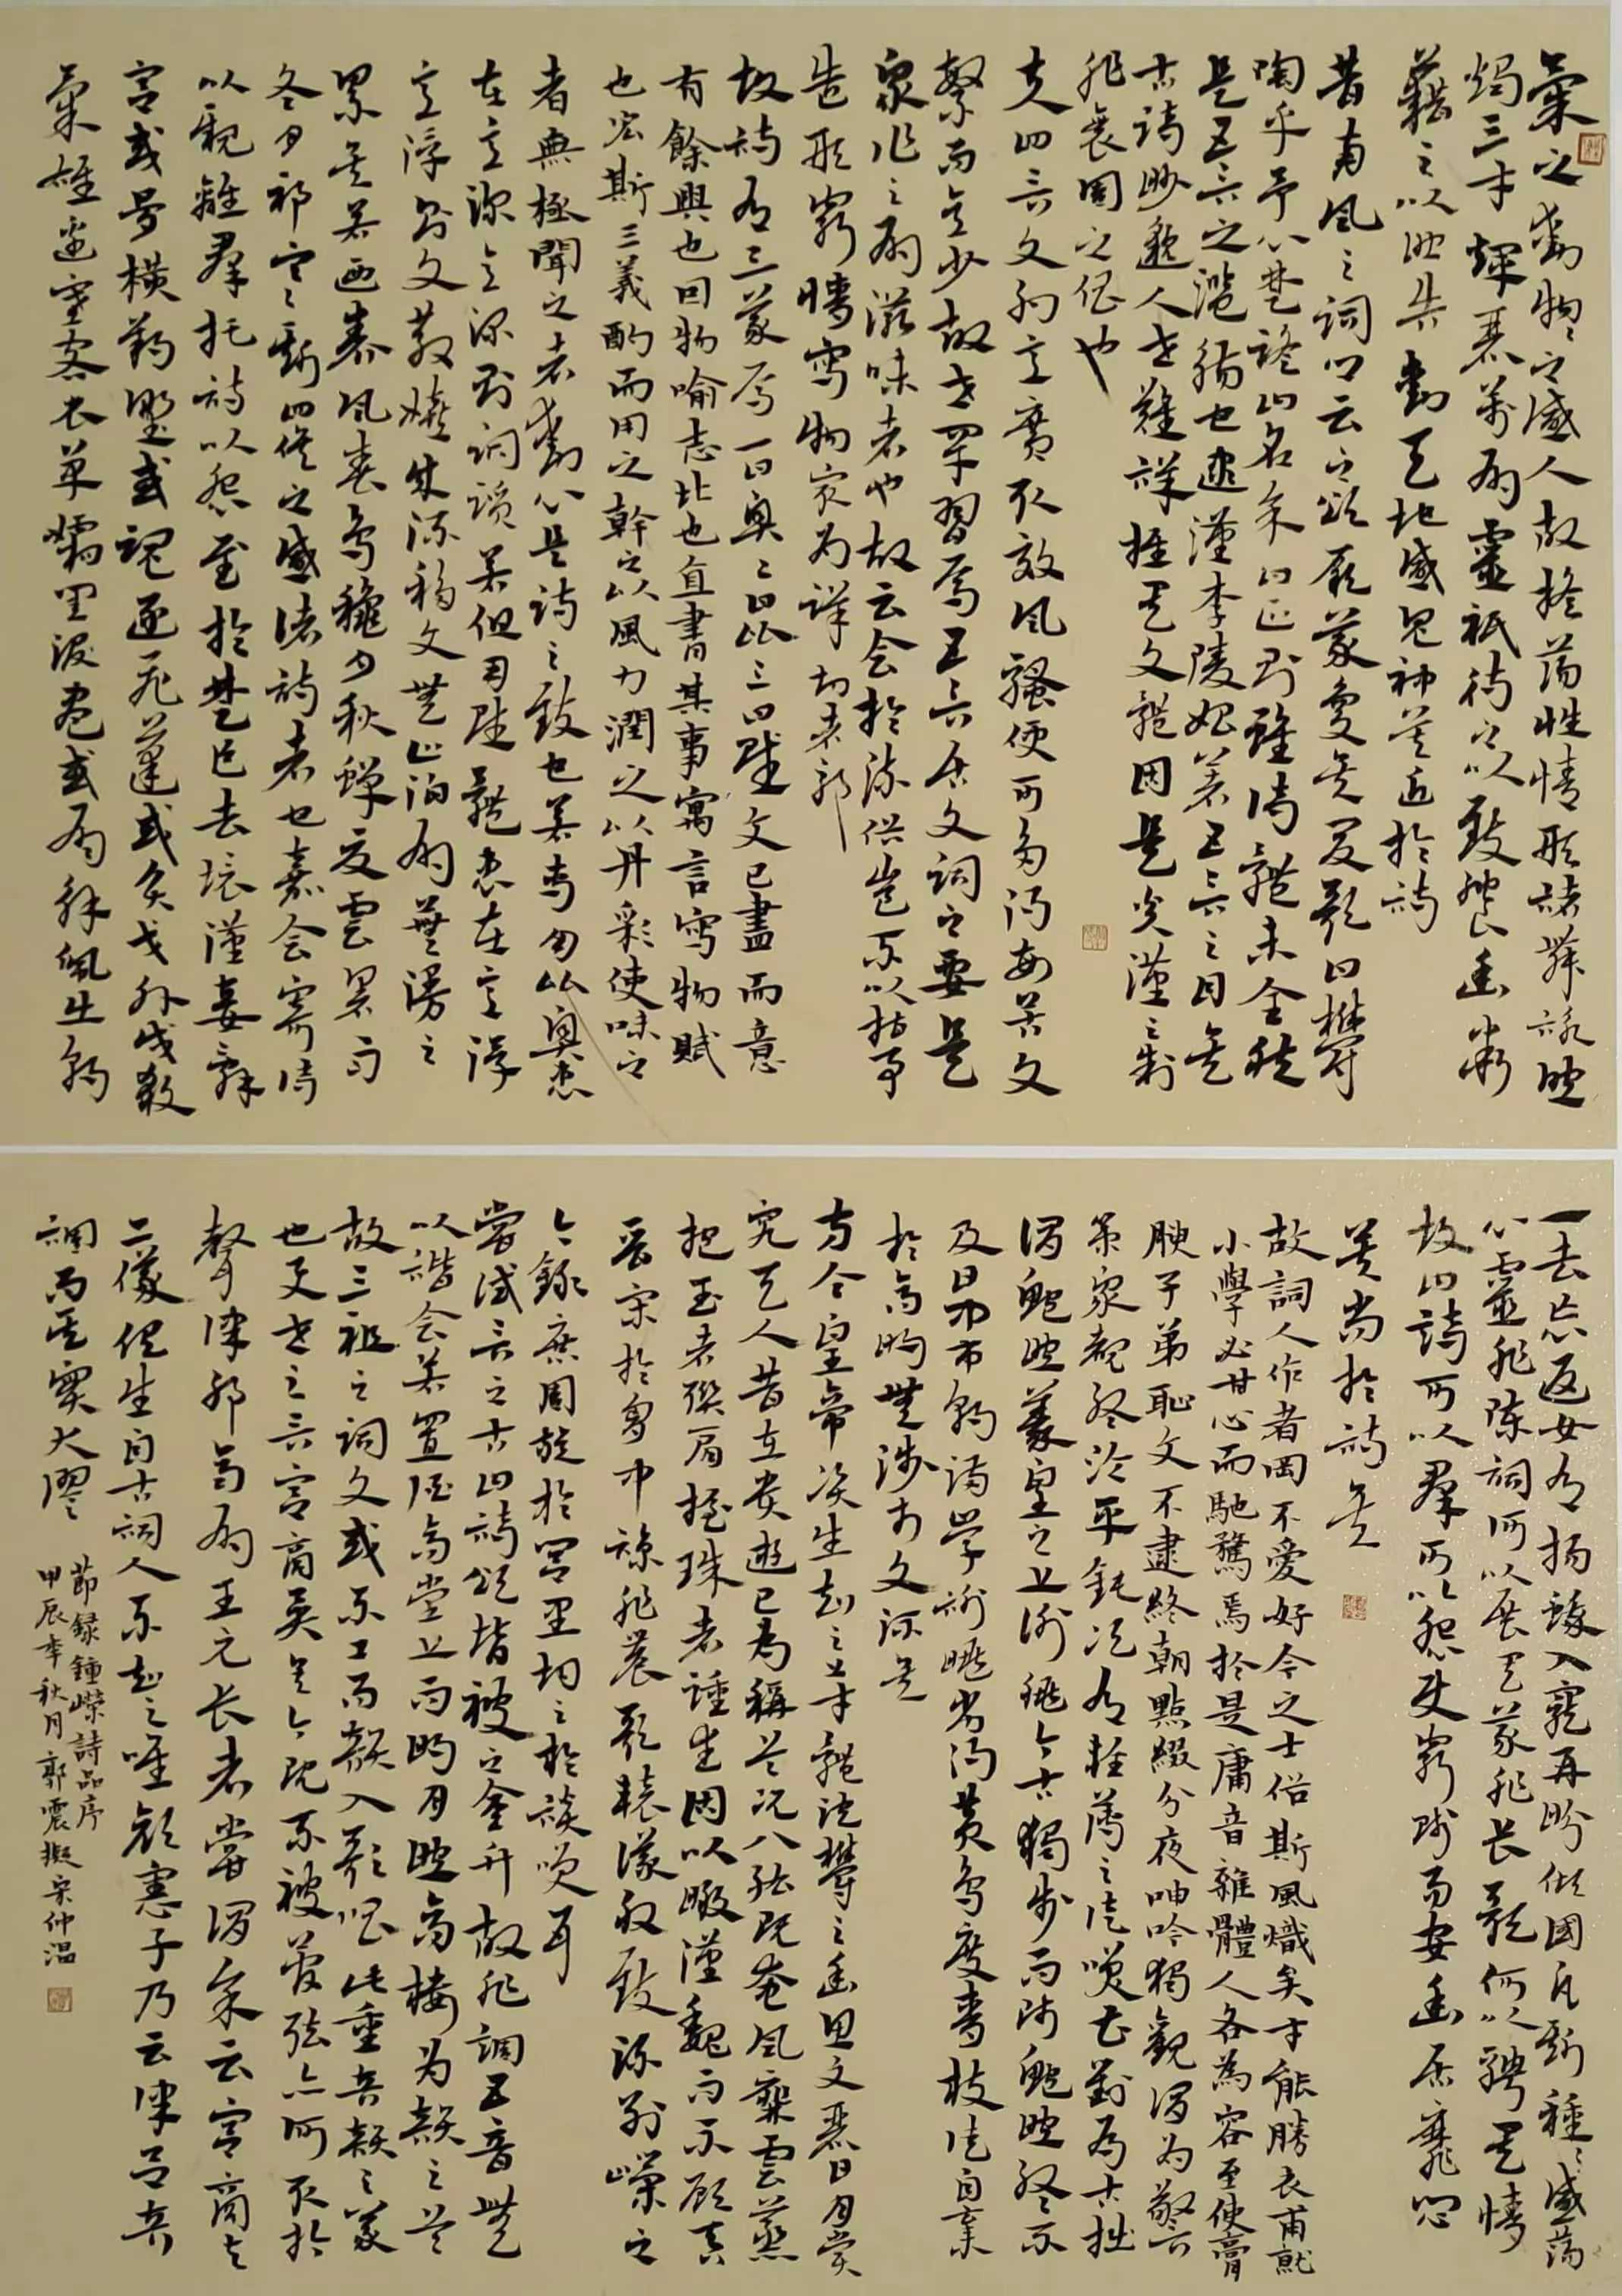 氣之動物物之感人故搖蕩性情形諸舞詠照
燭三才煇麗萬有靈祇待之以致饗幽微
藉之以昭告動天地感鬼神莫近於詩
昔南風之詞卿云之頌厥義夐矣夏歌曰鬱
陶乎予心楚謠曰名余曰正則雖詩體未全然
是五言之濫觴也逮漢李陵始著五言之目矣
古詩眇邈人世難詳推其文體固是炎漢之制
非衰周之倡也
夫四言文約意廣取效風騷便可多得每苦文
繁而意少故世罕習焉五言居文詞之要是
眾作之有滋味者也故云會於流俗豈不以指事
造形窮情寫物最為詳切者邪
故詩有三義焉一曰興二曰比三曰賦文已盡而意
有餘興也因物喻志比也直書其事寓言寫物賦
也宏斯三義酌而用之幹之以風力潤之以丹彩使味之
者無極聞之者動心是詩之致也若專用比興患
在意深意深則詞躓若但用賦體患在意浮
意浮則文散嬉成流移文無止泊有蕪漫之
累矣若乃春風春鳥秋月秋蟬夏雲暑雨
冬月祁寒斯四候之感諸詩者也嘉會寄詩
以親離群托詩以怨至於楚臣去境漢妾辭
宮或骨橫朔野或魂逐飛蓬或負戈外戍殺
氣雄邊塞客衣單孀閨淚盡或有解佩出朝
一去忘返女有揚蛾入寵再盼傾國凡斯種種感蕩
心靈非陳詞何以展其義非長歌何以騁其情
故曰詩可以群可以怨使窮賤易安幽居靡悶
莫尚於詩矣
故詞人作者罔不愛好今之士俗斯風熾矣才能勝衣甫就
小學必甘心而馳騖焉於是庸音雜體人各為容至使膏
腴子弟恥文不逮終朝點綴分夜呻吟獨觀謂為警
策眾觀終淪平鈍次有輕薄之徒笑曹劉為古拙
謂鮑照羲皇之上謝朓今古獨步而師鮑照終不
及日中市朝滿學謝朓劣得黃鳥度青枝徒自棄
於高明無涉於文流矣
方今皇帝資生知之上才體沈鬱之幽思文麗日月賞
究天人昔在貴遊已為稱首況八紘既奄風靡雲蒸
抱玉者聯肩握珠者踵生固以瞰漢魏而不顧吞
晉宋於胸中諒非農歌轅議敢致流別嶸之
今錄庶周旋於閭里均之於談笑耳
嘗試言之古曰詩頌皆被之金竹故非調五音無
以諧會若置酒高堂上而明月照高樓為韻之首
故三祖之詞文或不工而韻入歌唱此重音韻之義
也與世之言宮商異矣今既不被管弦亦何取於
聲律邪齊有王元長者嘗謂余云宮商與
二儀俱生自古詞人不知之唯顏憲子乃云律呂音
調而其實大謬
節錄鍾嶸詩品序
甲辰年秋月郭震擬宋仲溫